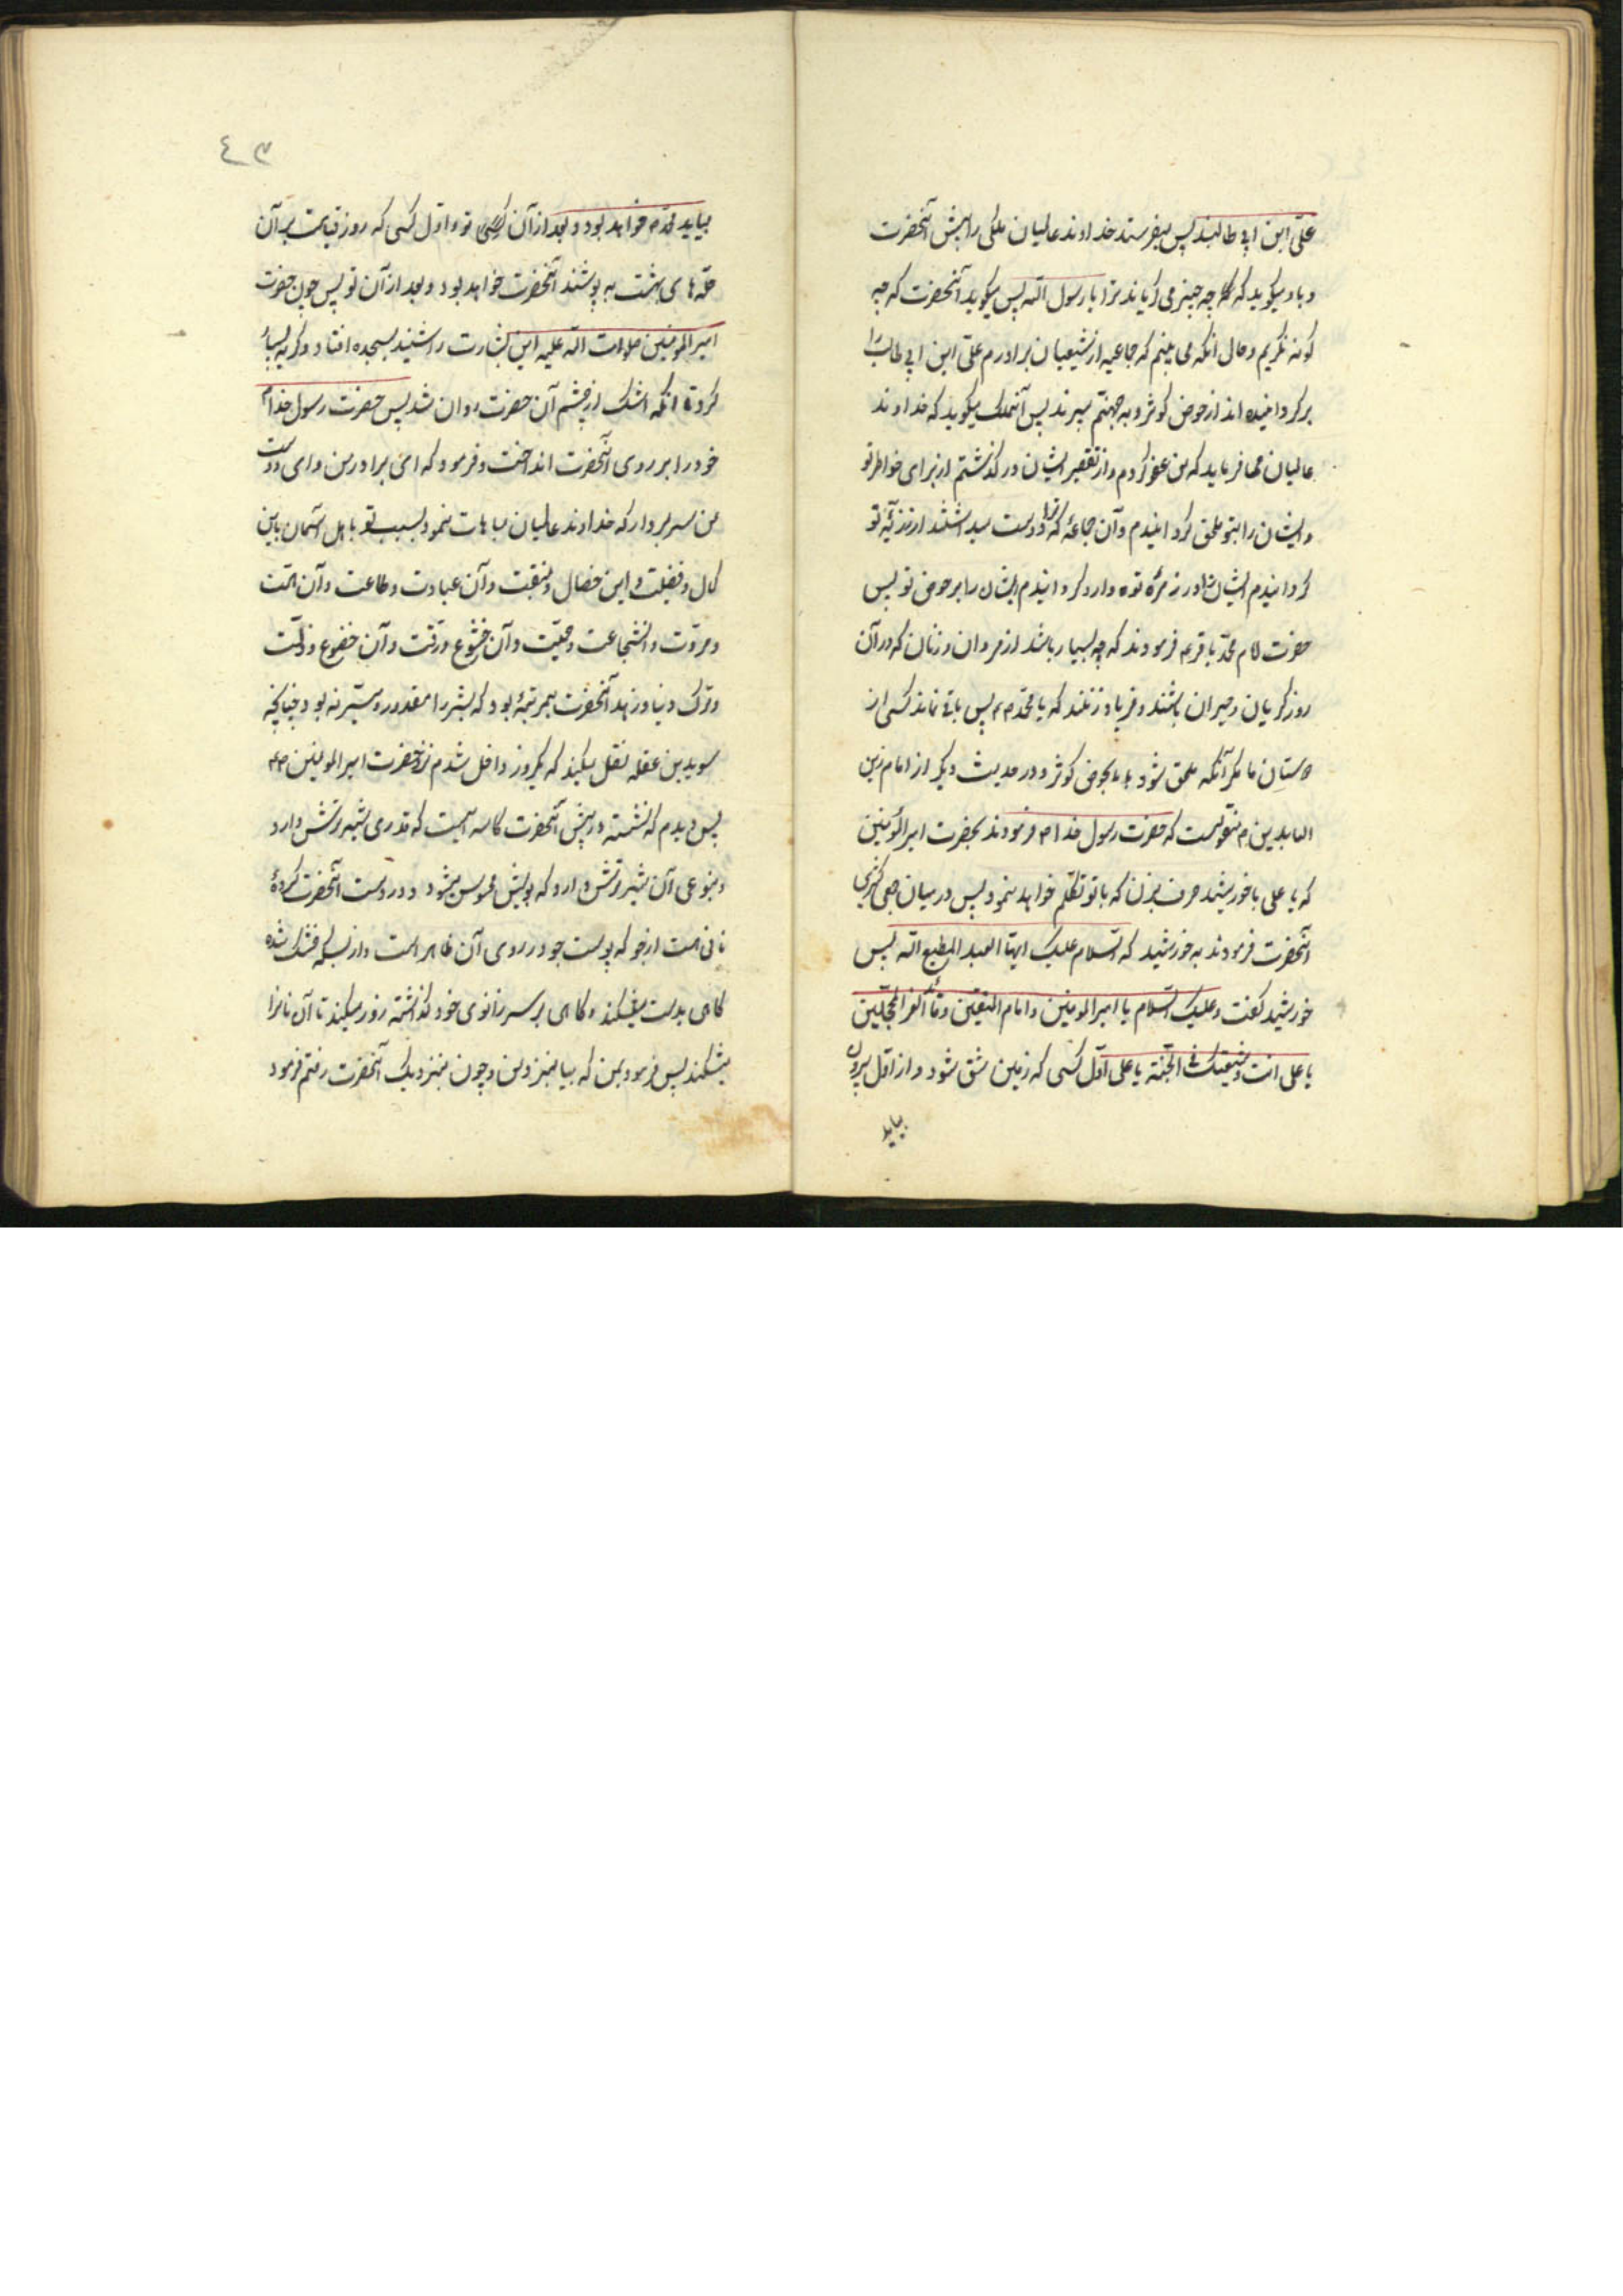 علی ابن ابی طالبند پس میفرستد خداوند عالمیان ملکی را به پیش آنحضرت
و باو میگوید که چه چیز می گریاند ترا یا رسول الله پس میگوید آنحضرت که چه
گونه نگریم و حال انکه می بینم که جماعیه از شیعیان برادرم علی ابن ابی طالب را
برگردانیده اند از حوض کوثر و به جهنم میبرند پس آنملک میگوید که خداوند
عالمیان می فرماید که من عفو کردم و از تقصیر ایشان در گذشتم از برای خواطر تو
و ایشان را بتو ملحق گردانیدم و آن جماعۀ که ترا دوست میداشتند از ذریّۀ تو
گردانیدم ایشان را در زمرۀ تو و وارد گردانیدم ایشان را بر حوض تو پس
حضرت امام محمد باقر ع فرمودند که چه بسیار باشد از مردان و زنان که در آن
روز گریان و حیران باشند و فریاد زنند که یا محمد ص پس باقی نماند کسی از
دوستان ما مگر آنکه ملحق شود بما بحوض کوثر و در حدیث دیگر از امام زین
العابدین ع منقولست که حضرت رسول خدا ص فرمودند بحضرت امیر المؤمنین
که یا علی با خورشید حرف بزن که با تو تکلم خواهد نمود پس در میان جمعی کثیری
آنحضرت فرمودند به خورشید که السلام علیک ایها العبد المطیع الله پس
خورشید گفت و علیک السلام یا امیر المومنین و امام المتقین و قائد الغر المحجلین
یا علی انت و شیعتک فی الجنه یا علی اول کسی که زمین شق شود و از اول بیرون
بیاید
٤٣
بیاید محمد ص خواهد بود و بعد از آن تو و اول کسی که روز قیامت بر آن
حلّه های بهشت به پوشند آنحضرت خواهد بود و بعد از آن تو پس چون حضرت
امیر المومنین صلوات الله علیه این بشارت را شنید بسجده افتاد و گریه بسیار
کرد تا انکه اشک از چشم آن حضرت روان شد پس حضرت رسول خدا ص
خود را بر روی آنحضرت انداخت و فرمود که ای برادر من و ای دوست
من سر بردار که خداوند عالمیان مباهات نمود بسبب تو باهل آسمان باین
کمال و فضیلت و این خصال و منقبت و آن عبادت و طاعت و آن همت
و مروّت و شجاعت و حمیّت و آن خشوع و رقت و آن خضوع و ذلّت
و ترک دنیا و زهد آنحضرت بمرتبۀ بود که بشر را مقدور و میسّر نه بود چنانچه
سوید بن غفله نقل میکند که یکروز داخل شدم نزد حضرت امیر المومنین ع
پس دیدم که نشسته و در پیش آنحضرت کاسه ایست که قدری شیر ترش دارد
و بنوعی آن شیر ترش دارد که بویش محسوس میشود و در دست آنحضرت گردۀ
نانی است از جو که پوست جو در روی آن ظاهر است و از بسکه خشک شده
گاهی بدست میشکند و گاهی بر سر زانوی خود گذاشته زور میکند تا آن نانرا
میشکند پس فرمود بمن که بیا بنزد من و چون بنزدیک آنحضرت رفتم فرمود